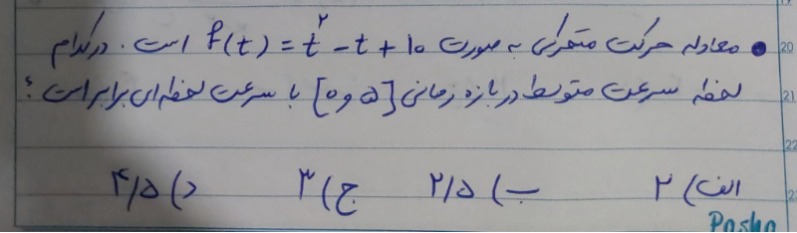 ● معادله حرکت متحرکی به صورت f(t) = t² - t + ۱۰ است. در کدام
لحظه سرعت متوسط در بازه زمانی [۵ و ۰] با سرعت لحظه‌ای برابر است؟
الف) ۲ ب) ۲/۵ ج) ۳ د) ۴/۵
Pasha
20
21
22